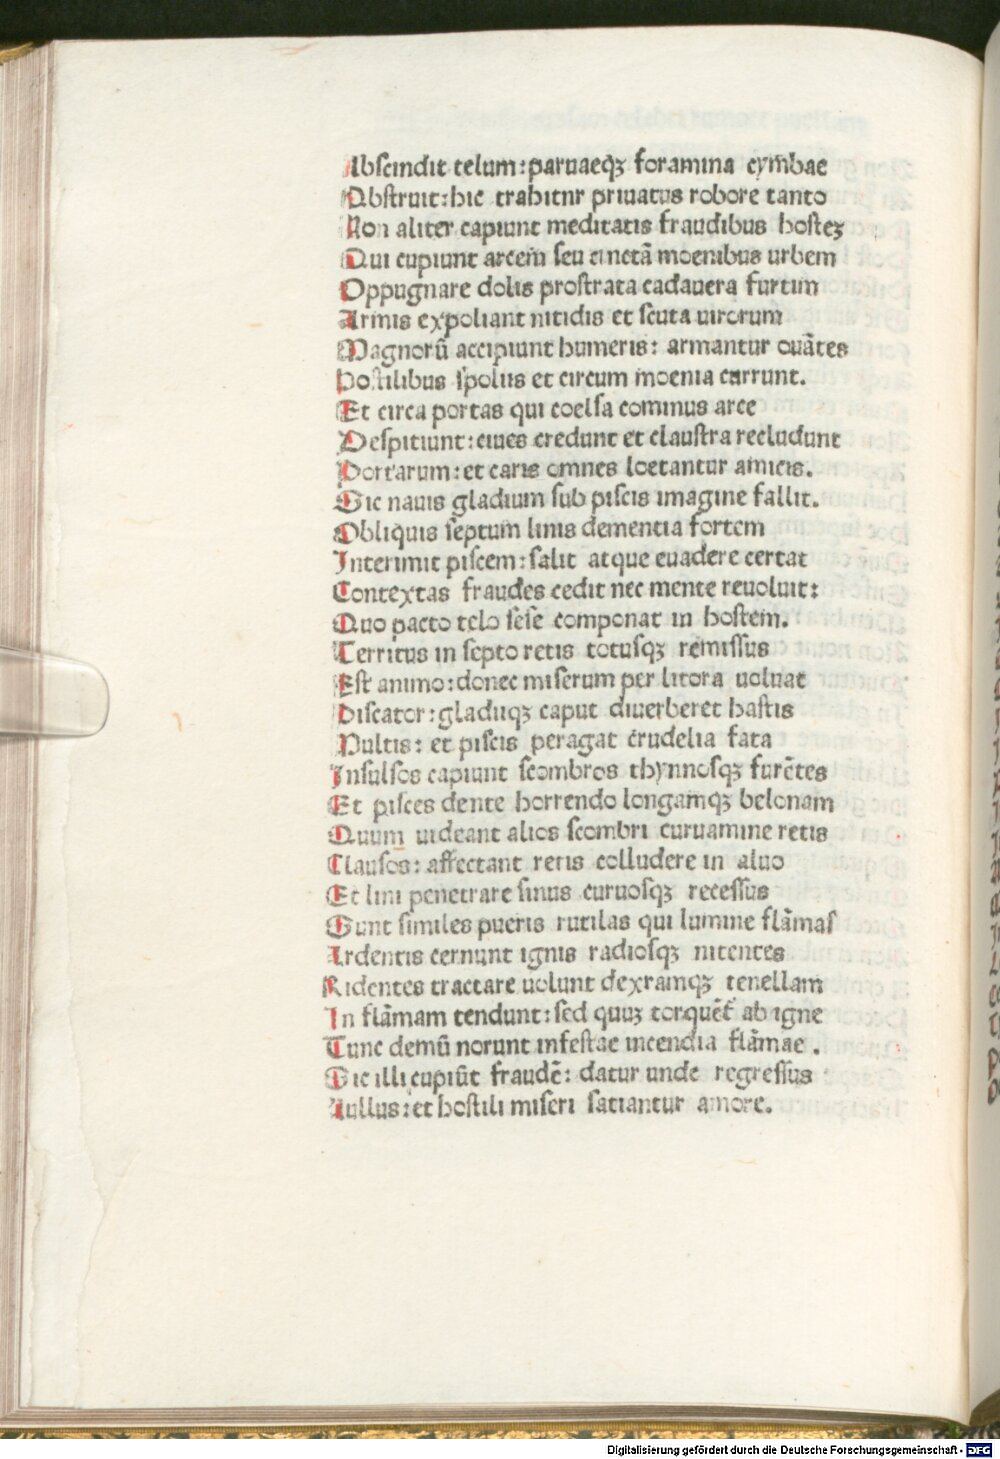 Abscindit telum: paruaeqꝫ foramina cym̃bae
Obstruit: hic trahitnr priuatus robore tanto
Non aliter capiunt meditatis fraudibus hosteʒ
Qui cupiunt arcem seu cinctā moenibus urbem
Oppugnare dolis prostrata cadauera furtim
Armis expoliant nitidis et scuta uirorum
Magnorū accipiunt humeris: armantur ouātes
Hostilibus spoliis et circum moenia currunt.
Et circa portas qui coelsa cominus arce
Despitiunt: ciues credunt et claustra recludunt
Portarum: et caris omnes loetantur amicis.
Sic nauis gladium sub piscis imagine fallit.
Obliquis septum linis dementia fortem
Interimit piscem: salit atque euadere certat
Contextas fraudes cedit nec mente reuoluit:
Quo pacto telo sese componat in hostem.
Territus in septo retis totusqꝫ remissus
Est animo: donec miserum per litora uoluat
Piscator: gladiiqꝫ caput diuerberet hastis
Multis: et piscis peragat crudelia fata
Insulsos capiunt scombros thynnosqꝫ furētes
Et pisces dente horrendo longamqꝫ belonam
Quum uideant alios scombri curuamine retis
Clausos: affectant retis colludere in aluo
Et lini penetrare sinus curuosqꝫ recessus
Sunt similes pueris rutilas qui lumine flāmas
Ardentis cernunt ignis radiosqꝫ nitentes
Ridentes tractare uolunt dexramqꝫ tenellam
In flāmam tendunt: sed quuꝫ torquēt ab igne
Tunc demū norunt infestae incendia flāmae .
Sic illi cupiūt fraudē: datur unde regressus
Nullus: et hostili miseri satiantur amore.
Digitalisierung gefördert durch die Deutsche Forschungsgemeinschaft - DFG